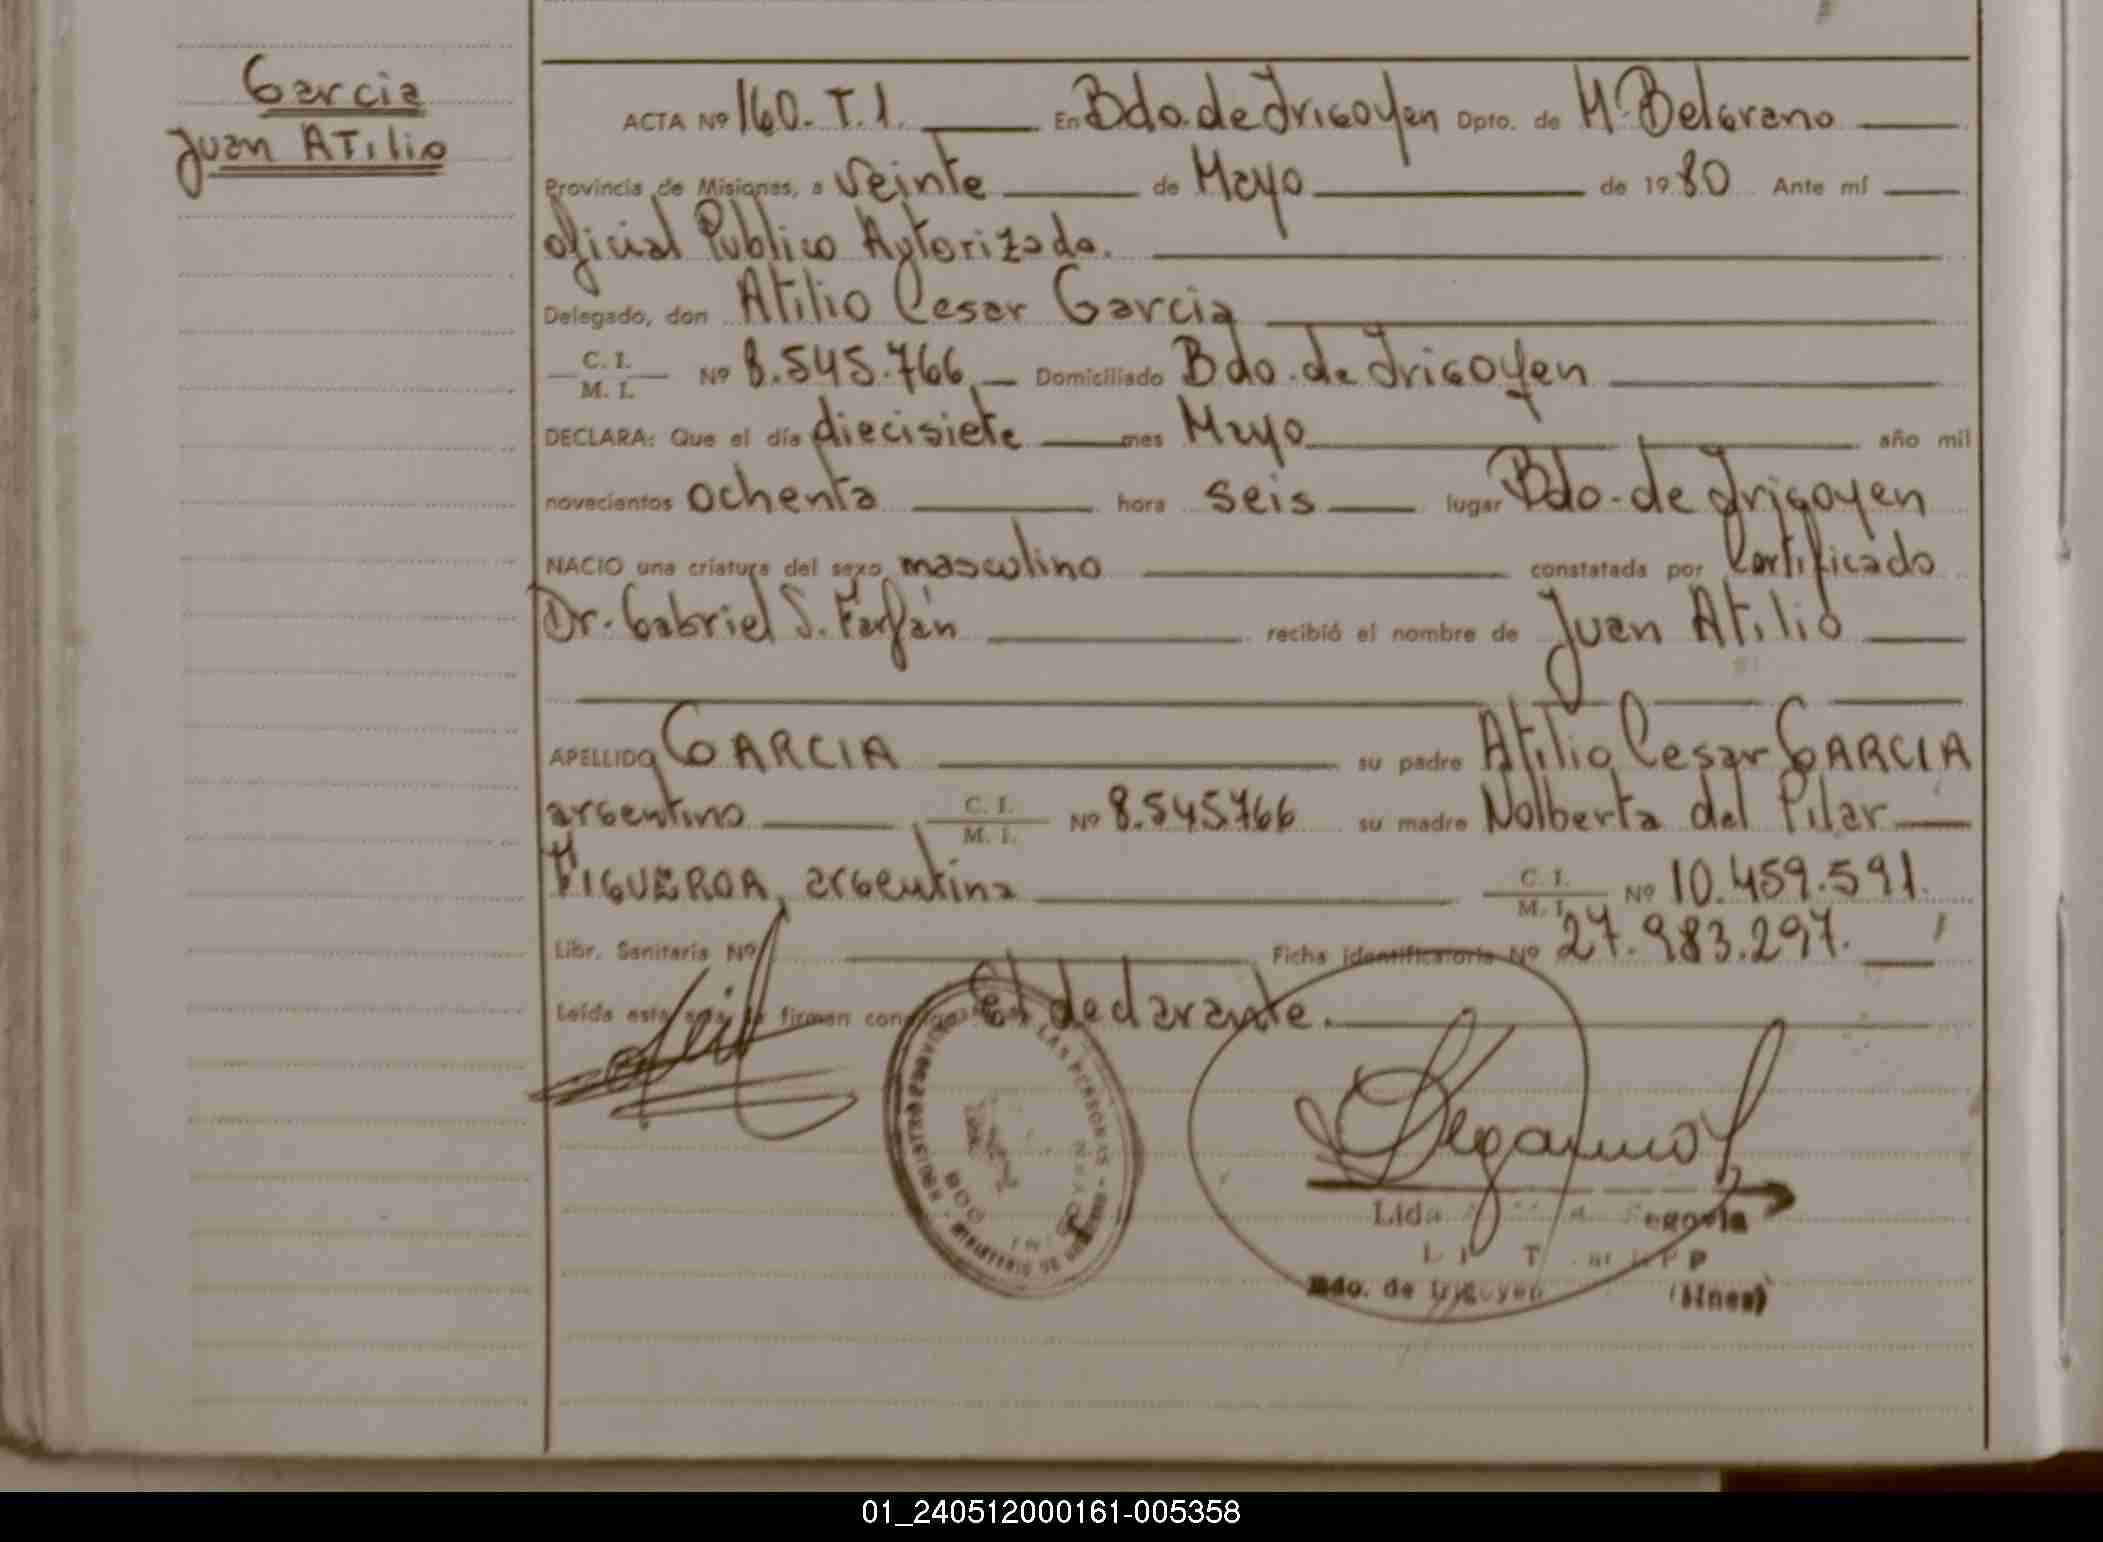 Garcia
Juan Atilio
ACTA Nº 160. T. 1. En Bdo. de Irigoyen Dpto. de M. Belgrano
Provincia de Misiones, a veinte de Mayo de 1980 Ante mí
oficial Publico Autorizado.
Delegado, don Atilio Cesar Garcia
C. I.
M. I.
Nº 8.545.766 Domiciliado Bdo. de Irigoyen
DECLARA: Que el día diecisiete mes Mayo año mil
novecientos ochenta hora seis lugar Bdo. de Irigoyen
NACIO una criatura del sexo masculino constatada por Certificado
Dr. Gabriel S. Farfán recibió el nombre de Juan Atilio
APELLIDO GARCIA su padre Atilio Cesar GARCIA
argentino C. I. M. I. Nº 8.545.766 su madre Nolberta del Pilar
FIGUEROA, argentina C. I. M. I. Nº 10.459.591.
Libr. Sanitaria Nº Ficha identificatoria Nº 27.983.297.
Leída esta firman el declarante.
LAS PERSONAS
BDO
Lida
Bdo. de Irigoyen (Mnes)
01_240512000161-005358